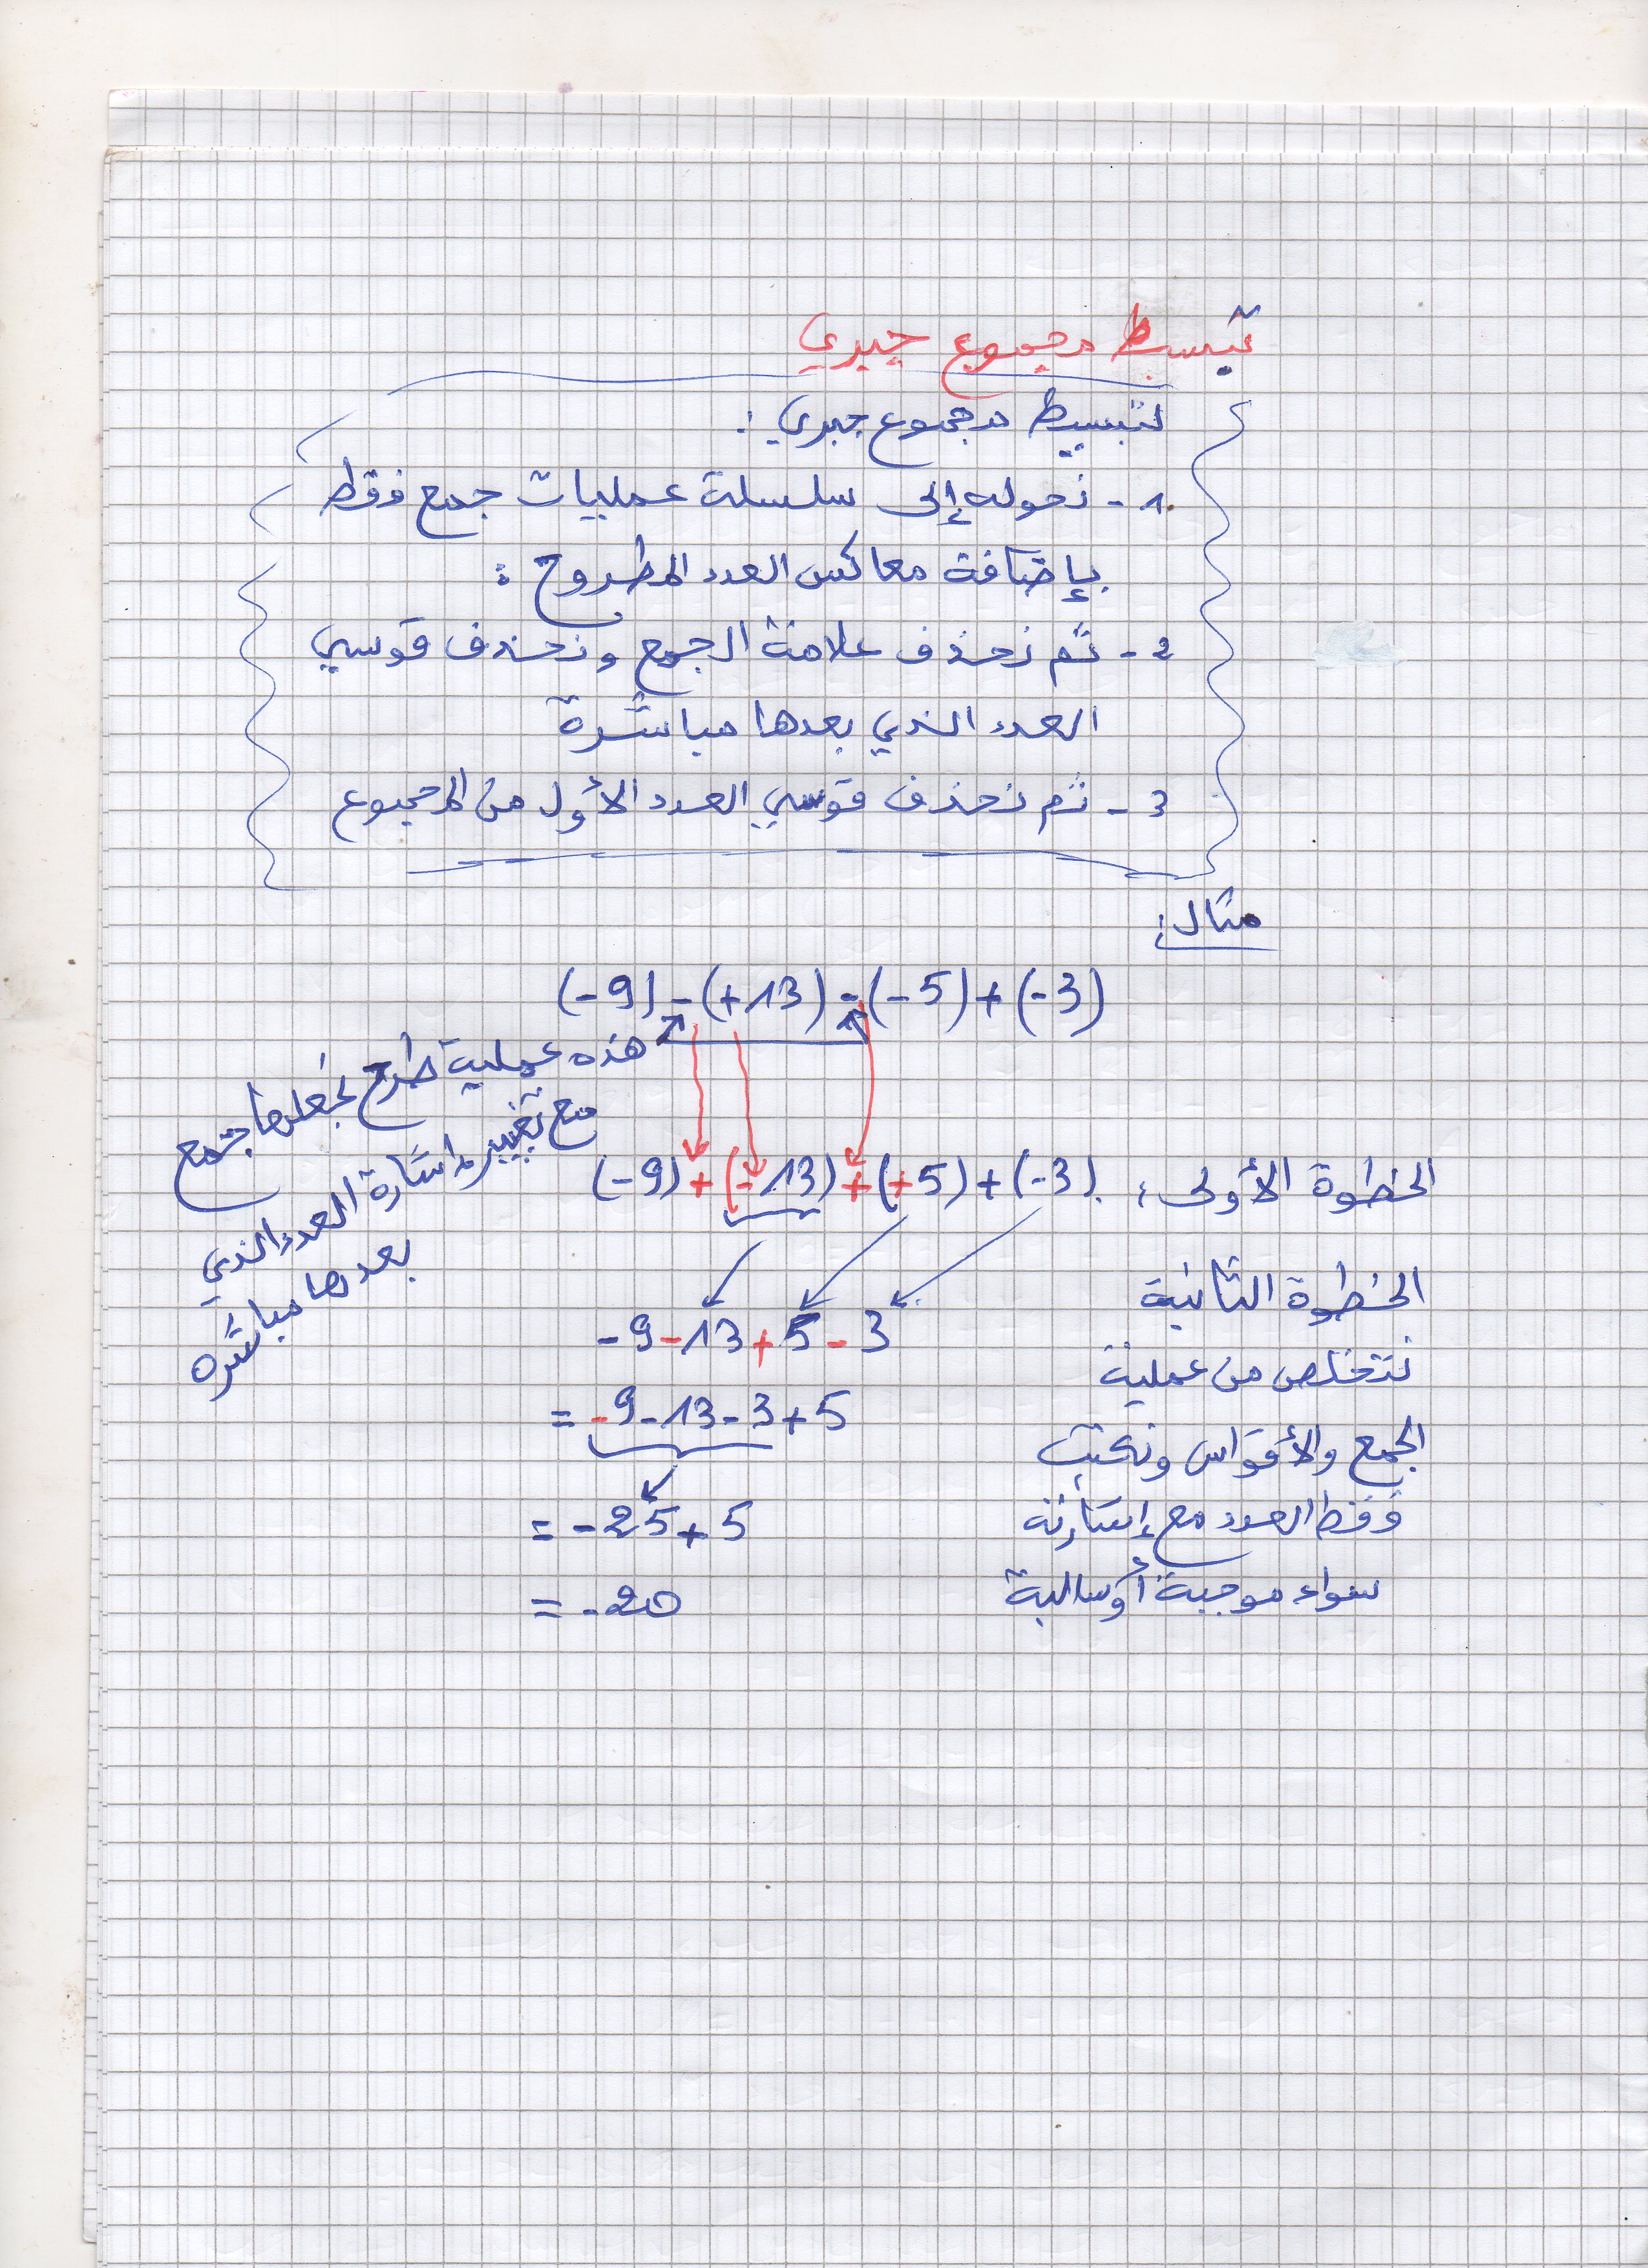 تبسيط مجموع جبري
لتبسيط مجموع جبري :
1 - نحوله إلى سلسلة عمليات جمع فقط
بإضافة معاكس العدد المطروح :
2 - ثم نحذف علامة الجمع ونحذف قوسي
العدد الذي بعدها مباشرة
3 - ثم نحذف قوسي العدد الأول من المجموع
مثال :
(-9) - (+13) - (-5) + (-3)
هذه عملية طرح نجعلها جمع
مع تغيير اشارة العدد الذي
بعدها مباشرة
الخطوة الأولى : (-9) + (-13) + (+5) + (-3)
الخطوة الثانية
-9 - 13 + 5 - 3
نتخلص من عملية
= -9 - 13 - 3 + 5
الجمع والأقواس ونكتب
= -25 + 5
فقط العدد مع إشارته
= -20
سواء موجبة أوسالبة